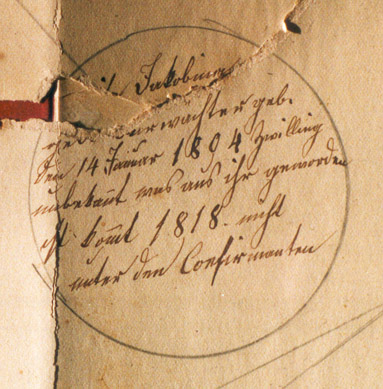 Jakobina
geb.
den 14 Januar 1804, Zwilling
unbekannt was aus ihr geworden
ist. kom̅t 1818. nicht
unter den Confirmanten